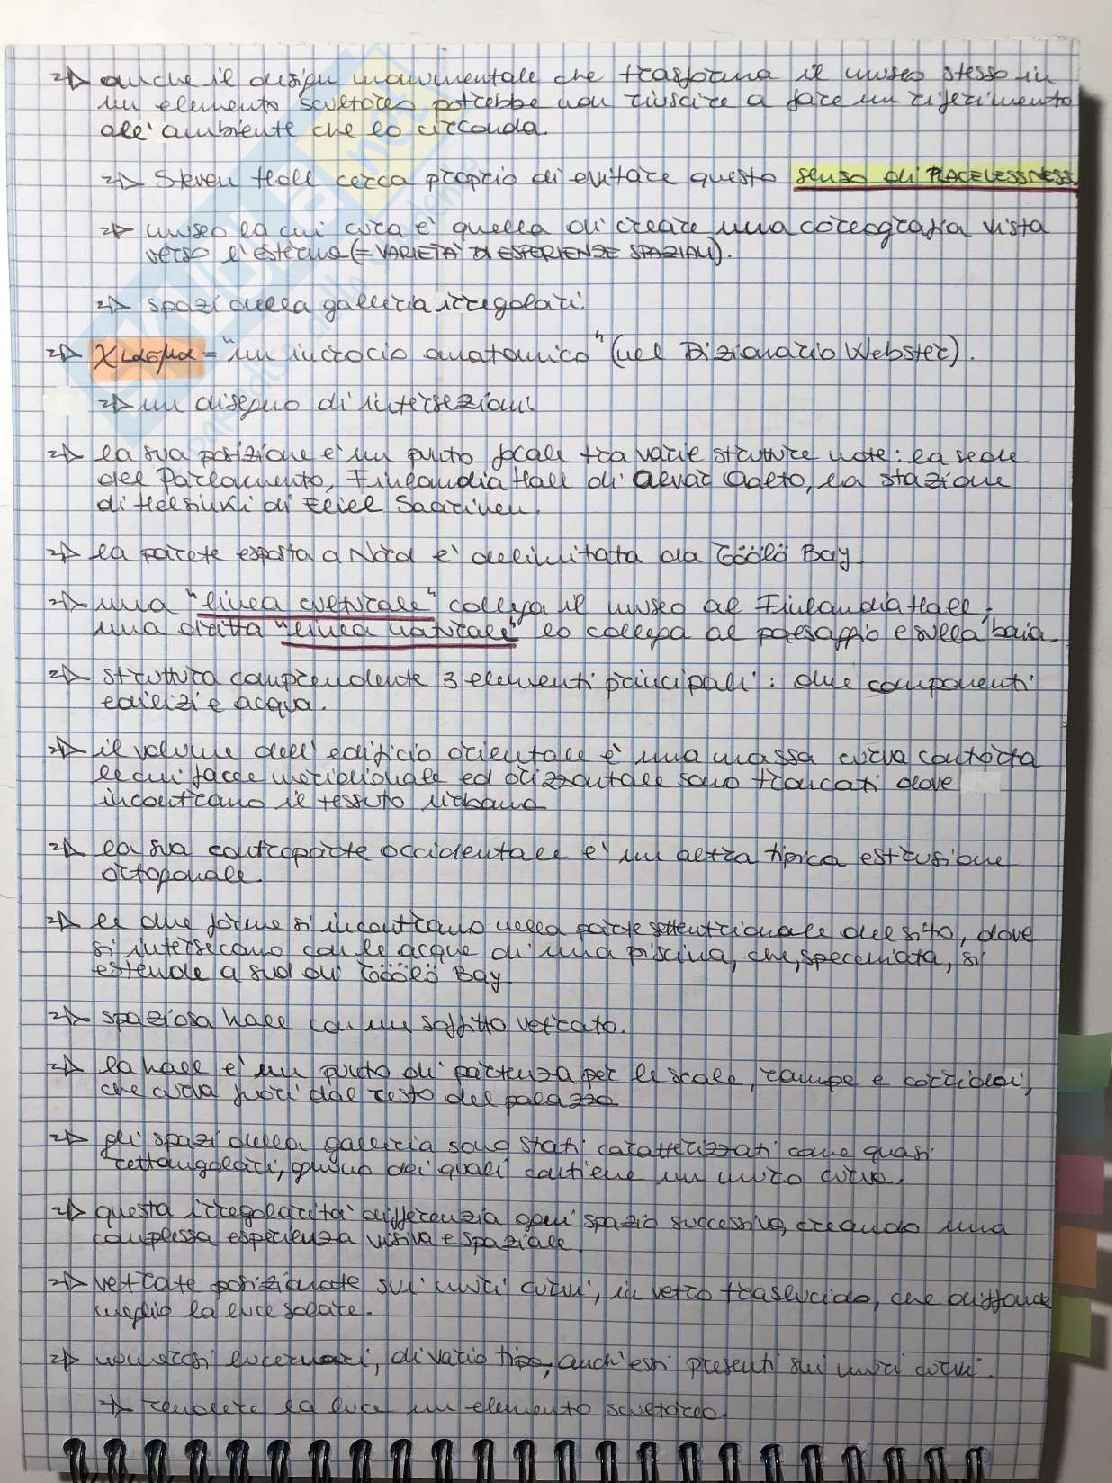 => anche il design monumentale che trasforma il museo stesso in
un elemento scultoreo potrebbe non riuscire a fare un riferimento
all'ambiente che lo circonda.
=> Steven Holl cerca proprio di evitare questo senso di PLACELESSNESS
=> museo la cui idea è quella di creare una coreografia vista
verso l'esterno (= VARIETÀ DI ESPERIENZE SPAZIALI).
=> spazi della galleria irregolari.
=> Χιασμα = "un incrocio anatomico" (nel Dizionario Webster).
=> un disegno di intersezioni.
=> la sua posizione è un punto focale tra varie strutture note: la sede
del Parlamento, Finlandia Hall di Alvar Aalto, la stazione
di Helsinki di Eliel Saarinen.
=> la parete esposta a Nord è delimitata da Töölö Bay.
=> una "linea culturale" collega il museo al Finlandia Hall;
una diritta "linea naturale" lo collega al paesaggio e sulla baia.
=> struttura comprendente 3 elementi principali: due componenti
edilizi e acqua.
=> il volume dell'edificio orientale è una massa curva contorta
le cui facce meridionale ed orizzontale sono troncati dove
incontrano il tessuto urbano
=> la sua controparte occidentale è un'altra tipica estrusione
ortogonale.
=> le due forme si incontrano nella parte settentrionale del sito, dove
si intersecano con le acque di una piscina, che, specchiata, si
estende a sud di Töölö Bay.
=> spaziosa hall con un soffitto vetrato.
=> la hall è un punto di partenza per le scale, rampe e corridoi,
che curva fuori dal resto del palazzo
=> gli spazi della galleria sono stati caratterizzati come quasi
rettangolari, ognuno dei quali contiene un muro curvo.
=> questa irregolarità differenzia ogni spazio successivo, creando una
complessa esperienza visiva e spaziale.
=> vetrate posizionate sui muri curvi, in vetro traslucido, che diffonde
meglio la luce solare.
=> numerosi lucernari, di vario tipo, anch'essi presenti sui muri curvi.
=> rendere la luce un elemento scultoreo.